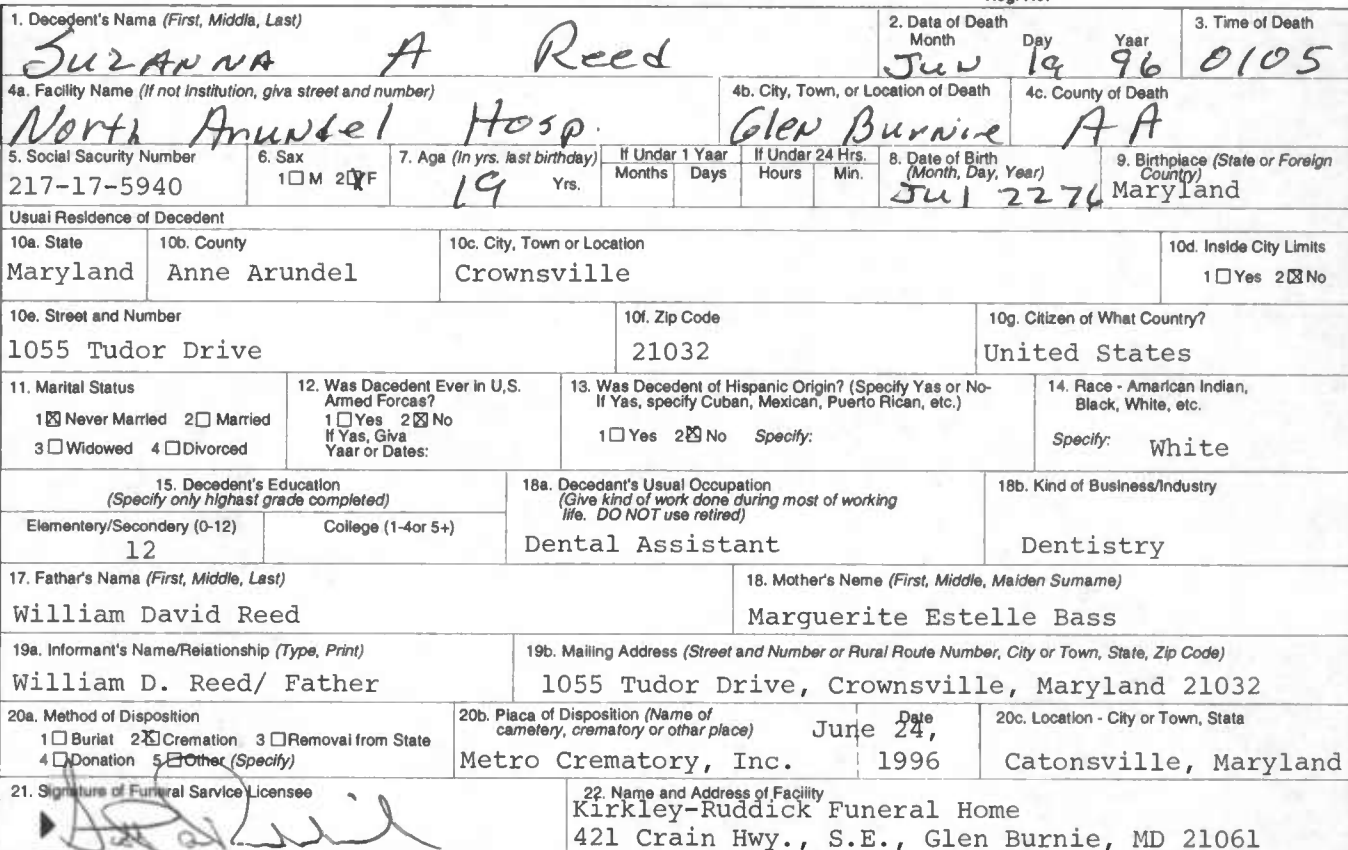 1. Decedent's Name (First, Middla, Last)
Suzanna A Reed
2. Data of Death
Month Day Yaar
Jun 19 96
3. Time of Death
0105
4a. Facility Name (If not Institution, giva street and number)
North Arundel Hosp.
4b. City, Town, or Location of Death
Glen Burnie
4c. County of Death
AA
5. Social Sacurity Number
217-17-5940
6. Sax
1☐ M 2☒ F
7. Aga (In yrs. last birthday)
19 Yrs.
If Undar 1 Yaar
Months Days
If Undar 24 Hrs.
Hours Min.
8. Date of Birth
(Month, Day, Year)
Jul 22 76
9. Birthplace (State or Foreign
Country)
Maryland
Usual Residence of Decedent
10a. State
Maryland
10b. County
Anne Arundel
10c. City, Town or Location
Crownsville
10d. Inside City Limits
1☐Yes 2☒No
10e. Street and Number
1055 Tudor Drive
10f. Zip Code
21032
10g. Citizen of What Country?
United States
11. Marital Status
1☒ Never Married 2☐ Married
3☐ Widowed 4☐ Divorced
12. Was Dacedent Ever in U,S.
Armed Forcas?
1☐Yes 2☒No
If Yas, Giva
Yaar or Dates:
13. Was Decedent of Hispanic Origin? (Specify Yas or No-
If Yas, specify Cuban, Mexican, Puerto Rican, etc.)
1☐Yes 2☒No Specify:
14. Race - Amarican Indian,
Black, White, etc.
Specify: White
15. Decedent's Education
(Specify only highast grade completed)
Elementery/Secondery (0-12)
12
College (1-4or 5+)
18a. Decedant's Usual Occupation
(Give kind of work done during most of working
life. DO NOT use retired)
Dental Assistant
18b. Kind of Business/Industry
Dentistry
17. Fathar's Nama (First, Middle, Last)
William David Reed
18. Mother's Neme (First, Middle, Maiden Sumame)
Marguerite Estelle Bass
19a. Informant's Name/Relationship (Type, Print)
William D. Reed/ Father
19b. Mailing Address (Street and Number or Rural Route Number, City or Town, State, Zip Code)
1055 Tudor Drive, Crownsville, Maryland 21032
20a. Method of Disposition
1☐ Buriat 2☒Cremation 3☐Removai from State
4☐Donation 5☐Other (Specify)
20b. Piaca of Disposition (Name of
cametery, crematory or othar place)
Metro Crematory, Inc.
Date
June 24,
1996
20c. Location - City or Town, Stata
Catonsville, Maryland
21. Signature of Funeral Sarvice Licensee
22. Name and Address of Facility
Kirkley-Ruddick Funeral Home
421 Crain Hwy., S.E., Glen Burnie, MD 21061